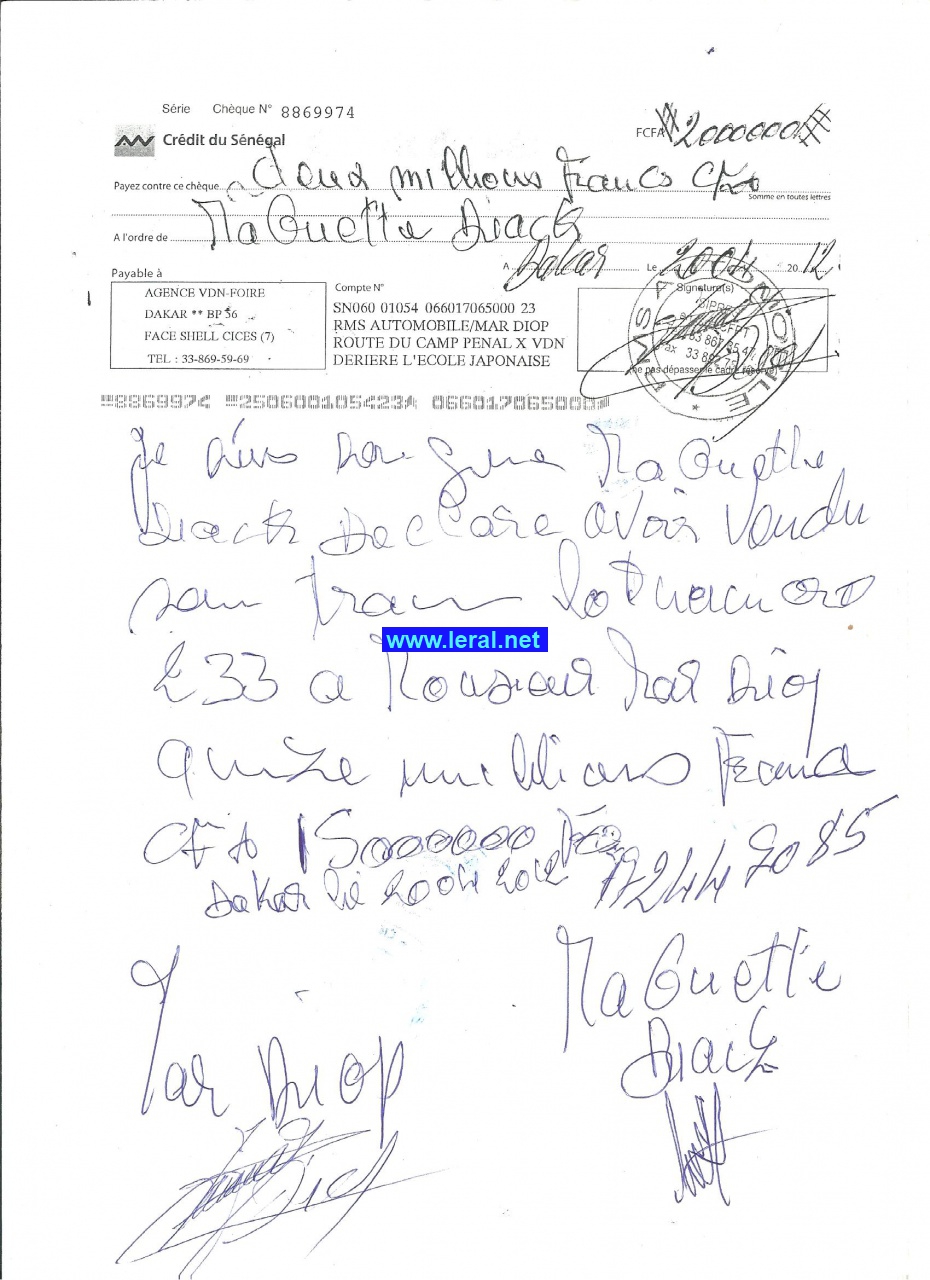 Série Chèque N° 8869974
Crédit du Sénégal
FCFA 2000000
Payez contre ce chèque deux millions Francs CFA
Somme en toutes lettres
A l'ordre de MaGuette Diack
A Dakar Le 2004 20 12
Payable à
Compte N°
Signature(s)
AGENCE VDN-FOIRE
DAKAR ** BP 56
FACE SHELL CICES (7)
TEL : 33-869-59-69
SN060 01054 066017065000 23
RMS AUTOMOBILE/MAR DIOP
ROUTE DU CAMP PENAL X VDN
DERIERE L'ECOLE JAPONAISE
(ne pas dépasser le cadre réservé)
8869974 250600105423 066017065000
Je MaGuette
Diack Declare avoir vendu
233 a Monsieur Mar Diop
quize millions Franc
CFA 15000000
Dakar le 2004 2012
www.leral.net
Mar Diop
MaGuette
Diack